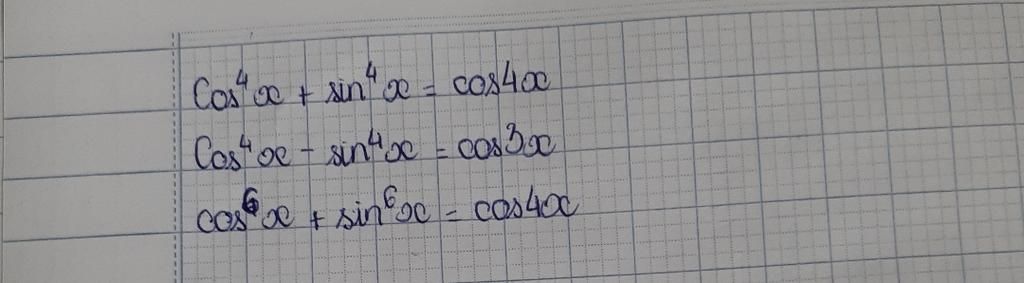 cos⁴x + sin⁴x = cos4x
cos⁴x - sin⁴x = cos3x
cos⁶x + sin⁶x = cos4x